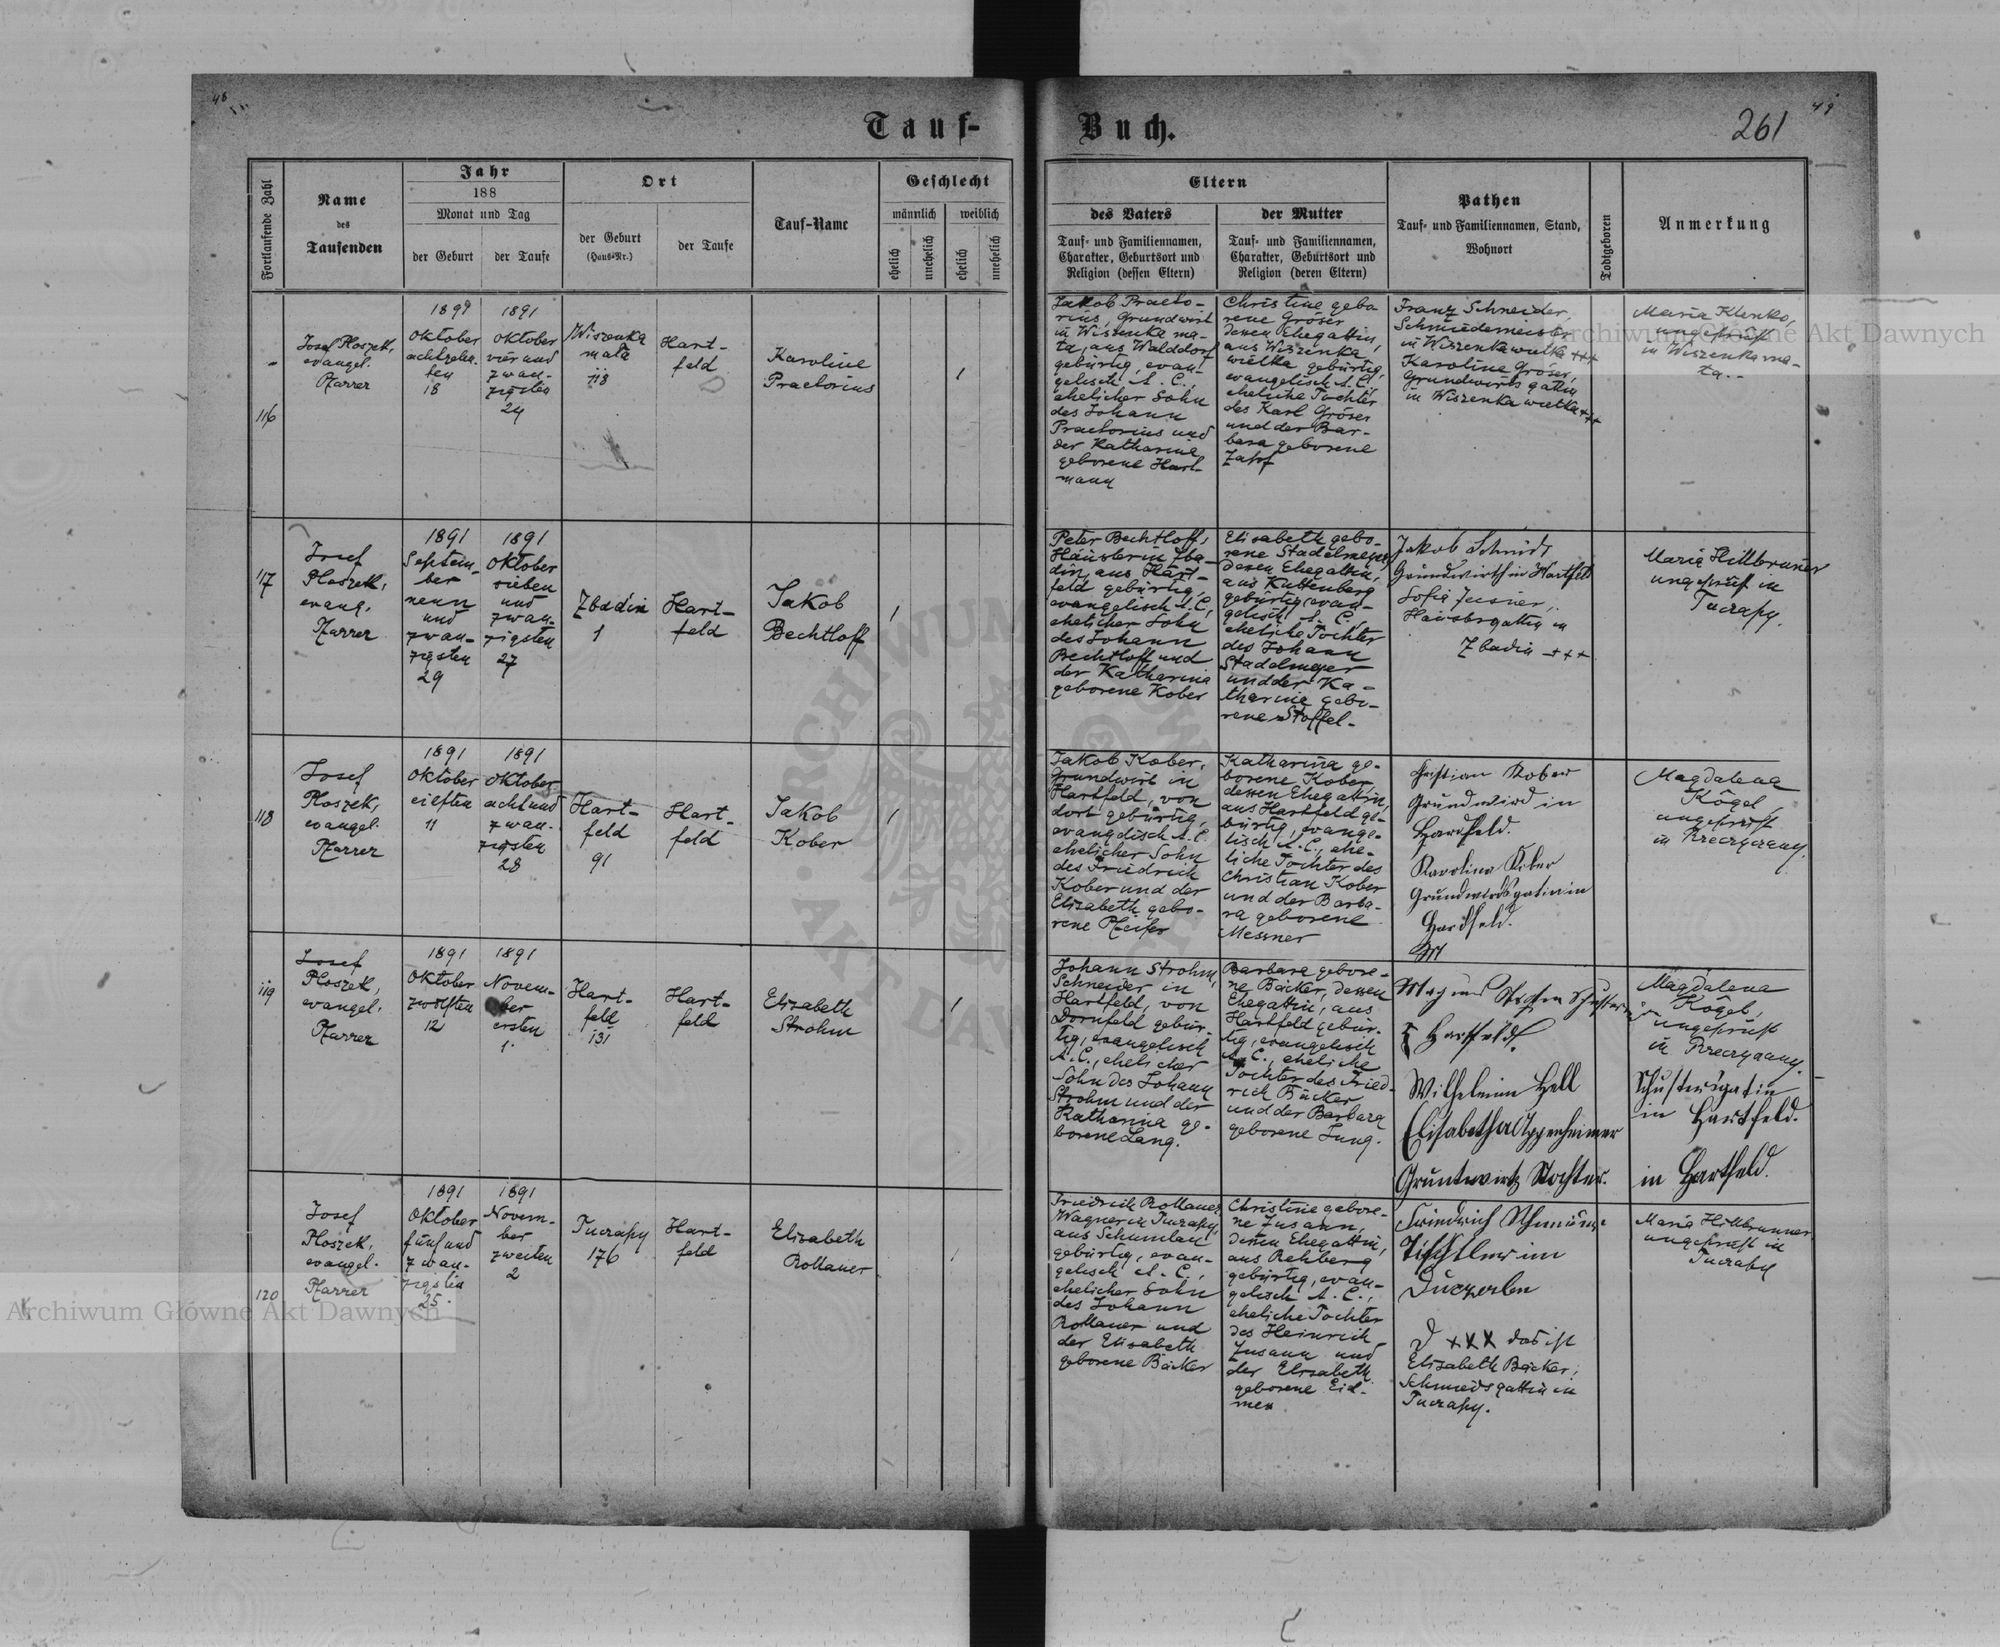 48
49
261
Tauf-
Buch.
Fortlaufende Zahl
Name
des
Taufenden
Jahr
188
Monat und Tag
der Geburt
der Taufe
Ort
der Geburt
(Haus-Nr.)
der Taufe
Tauf-Name
Geschlecht
männlich
weiblich
ehelich
unehelich
ehelich
unehelich
Eltern
des Vaters
Tauf- und Familiennamen,
Charakter, Geburtsort und
Religion (dessen Eltern)
der Mutter
Tauf- und Familiennamen,
Charakter, Geburtsort und
Religion (deren Eltern)
Pathen
Tauf- und Familiennamen, Stand,
Wohnort
Todtgeboren
Anmerkung
116
Josef Ploszek,
evangel.
Pfarrer
Oktober
achtzehn-
ten
18
1891
Oktober
vier und
zwan-
zigsten
24
Wiszenka
mała
118
Hart-
feld
Karoline
Praetorius
1
Jakob Praeto-
rius, Grundwirt
in Wiszenka ma-
ła, aus Walddorf
gebürtig, evan-
gelisch A. C.,
ehelicher Sohn
des Johann
Praetorius und
der Katharina
geborene Hart-
mann
Christine gebo-
rene Gröser
dessen Ehegattin,
aus Wiszenka
wielka gebürtig,
evangelisch A. C.,
eheliche Tochter
des Karl Gröser
und der Bar-
bara geborene
Franz Schneider,
Schmiedemeister
in Wiszenka wielka +++
Karoline Gröser,
Grundwirts gattin
in Wiszenka wielka +++
Maria Klenko,
ungeprüft
in Wiszenka ma-
ła.-
117
Josef
Ploszek,
evang.
Pfarrer
1891
Septem-
ber
neun
und
zwan-
zigsten
29
1891
Oktober
sieben
und
zwan-
zigsten
27
Zbadin
1
Hart-
feld
Jakob
Bechtloff
1
Peter Bechtloff,
Häusler in Zba-
din, aus Hart-
feld gebürtig,
evangelisch A. C.,
ehelicher Sohn
des Johann
Bechtloff und
der Katharina
geborene Kober
Elisabeth gebo-
rene Stadelmeyer
dessen Ehegattin,
aus Kuttenberg
gebürtig, evan-
gelisch A. C.
eheliche Tochter
des Johann
Stadelmeyer
und der Ka-
tharina gebo-
rene Stoffel.
Jakob Schmidt
Grundwirth in Hartfeld
Sofia
in
Zbadin +++
Maria Hillbruner
ungeprüft in
Tucrapy.
118
Josef
Ploszek,
evangel.
Pfarrer
1891
Oktober
eilften
11
1891
Oktober
acht und
zwan-
zigsten
28
Hart-
feld
91
Hart-
feld
Jakob
Kober
1
Jakob Kober,
Grundwirt in
Hartfeld, von
dort gebürtig,
evangelisch A. C.
ehelicher Sohn
des Friedrich
Kober und der
Elisabeth gebo-
rene Pfeifer
Katharina ge-
borene Kober
dessen Ehegattin,
aus Hartfeld ge-
bürtig, evange-
lisch A. C., ehe-
liche Tochter des
Christian Kober
und der Barba-
ra geborene
Messner
Christian Kober
Grundwird in
Hardfeld.
Karolina Kober
Grundwirdsgatin in
Hardfeld.
Magdalena
Kögel,
ungeprüft
in Rzeczyczany.
119
Josef
Ploszek,
evangel.
Pfarrer
1891
Oktober
zwölften
12
1891
Novem-
ber
ersten
1.
Hart-
feld
131
Hart-
feld
Elisabeth
Strohm
1
Johann Strohm,
Schneider in
Hartfeld, von
Dornfeld gebür-
tig, evangelisch
A. C., ehelicher
Sohn des Johann
Strohm und der
Katharina ge-
borene Lang.
Barbara gebore-
ne Bäcker, dessen
Ehegattin, aus
Hartfeld gebür-
tig, evangelisch
A. C., eheliche
Tochter des Fried-
rich Bäcker
und der Barbara
geborene Jung.
Hartfeld.
Wilhelmin Hell
Elisabetha Oppenheimer
Gruntwirtz Tochter.
Magdalena
Kögel,
ungeprüft
in Rzeczyczany.
Schustersgatin
in Hartfeld.
in Hartfeld.
120
Josef
Ploszek,
evangel.
Pfarrer
1891
Oktober
fünf und
zwan-
zigsten
25.
1891
Novem-
ber
zweiten
2
Tucrapy
176
Hart-
feld
Elisabeth
Rollauer
1
Friedrich Rollauer,
Wagner in Tucrapy,
aus Schumlau
gebürtig, evan-
gelisch A. C.,
ehelicher Sohn
des Johann
Rollauer und
der Elisabeth
geborene Bäcker
Christine gebore-
ne Zusann,
dessen Ehegattin,
aus Rehberg
gebürtig, evan-
gelisch A. C.,
eheliche Tochter
des Heinrich
Zusann und
der Elisabeth
geborene Eid-
mer
Friedrich
Tischtler im
+XX das ist
Elisabeth Bäcker,
Schmieds gattin in
Tucrapy.
Maria Hillbrunner
ungeprüft in
Tucrapy
Archiwum Główne Akt Dawnych
Archiwum Główne Akt Dawnych